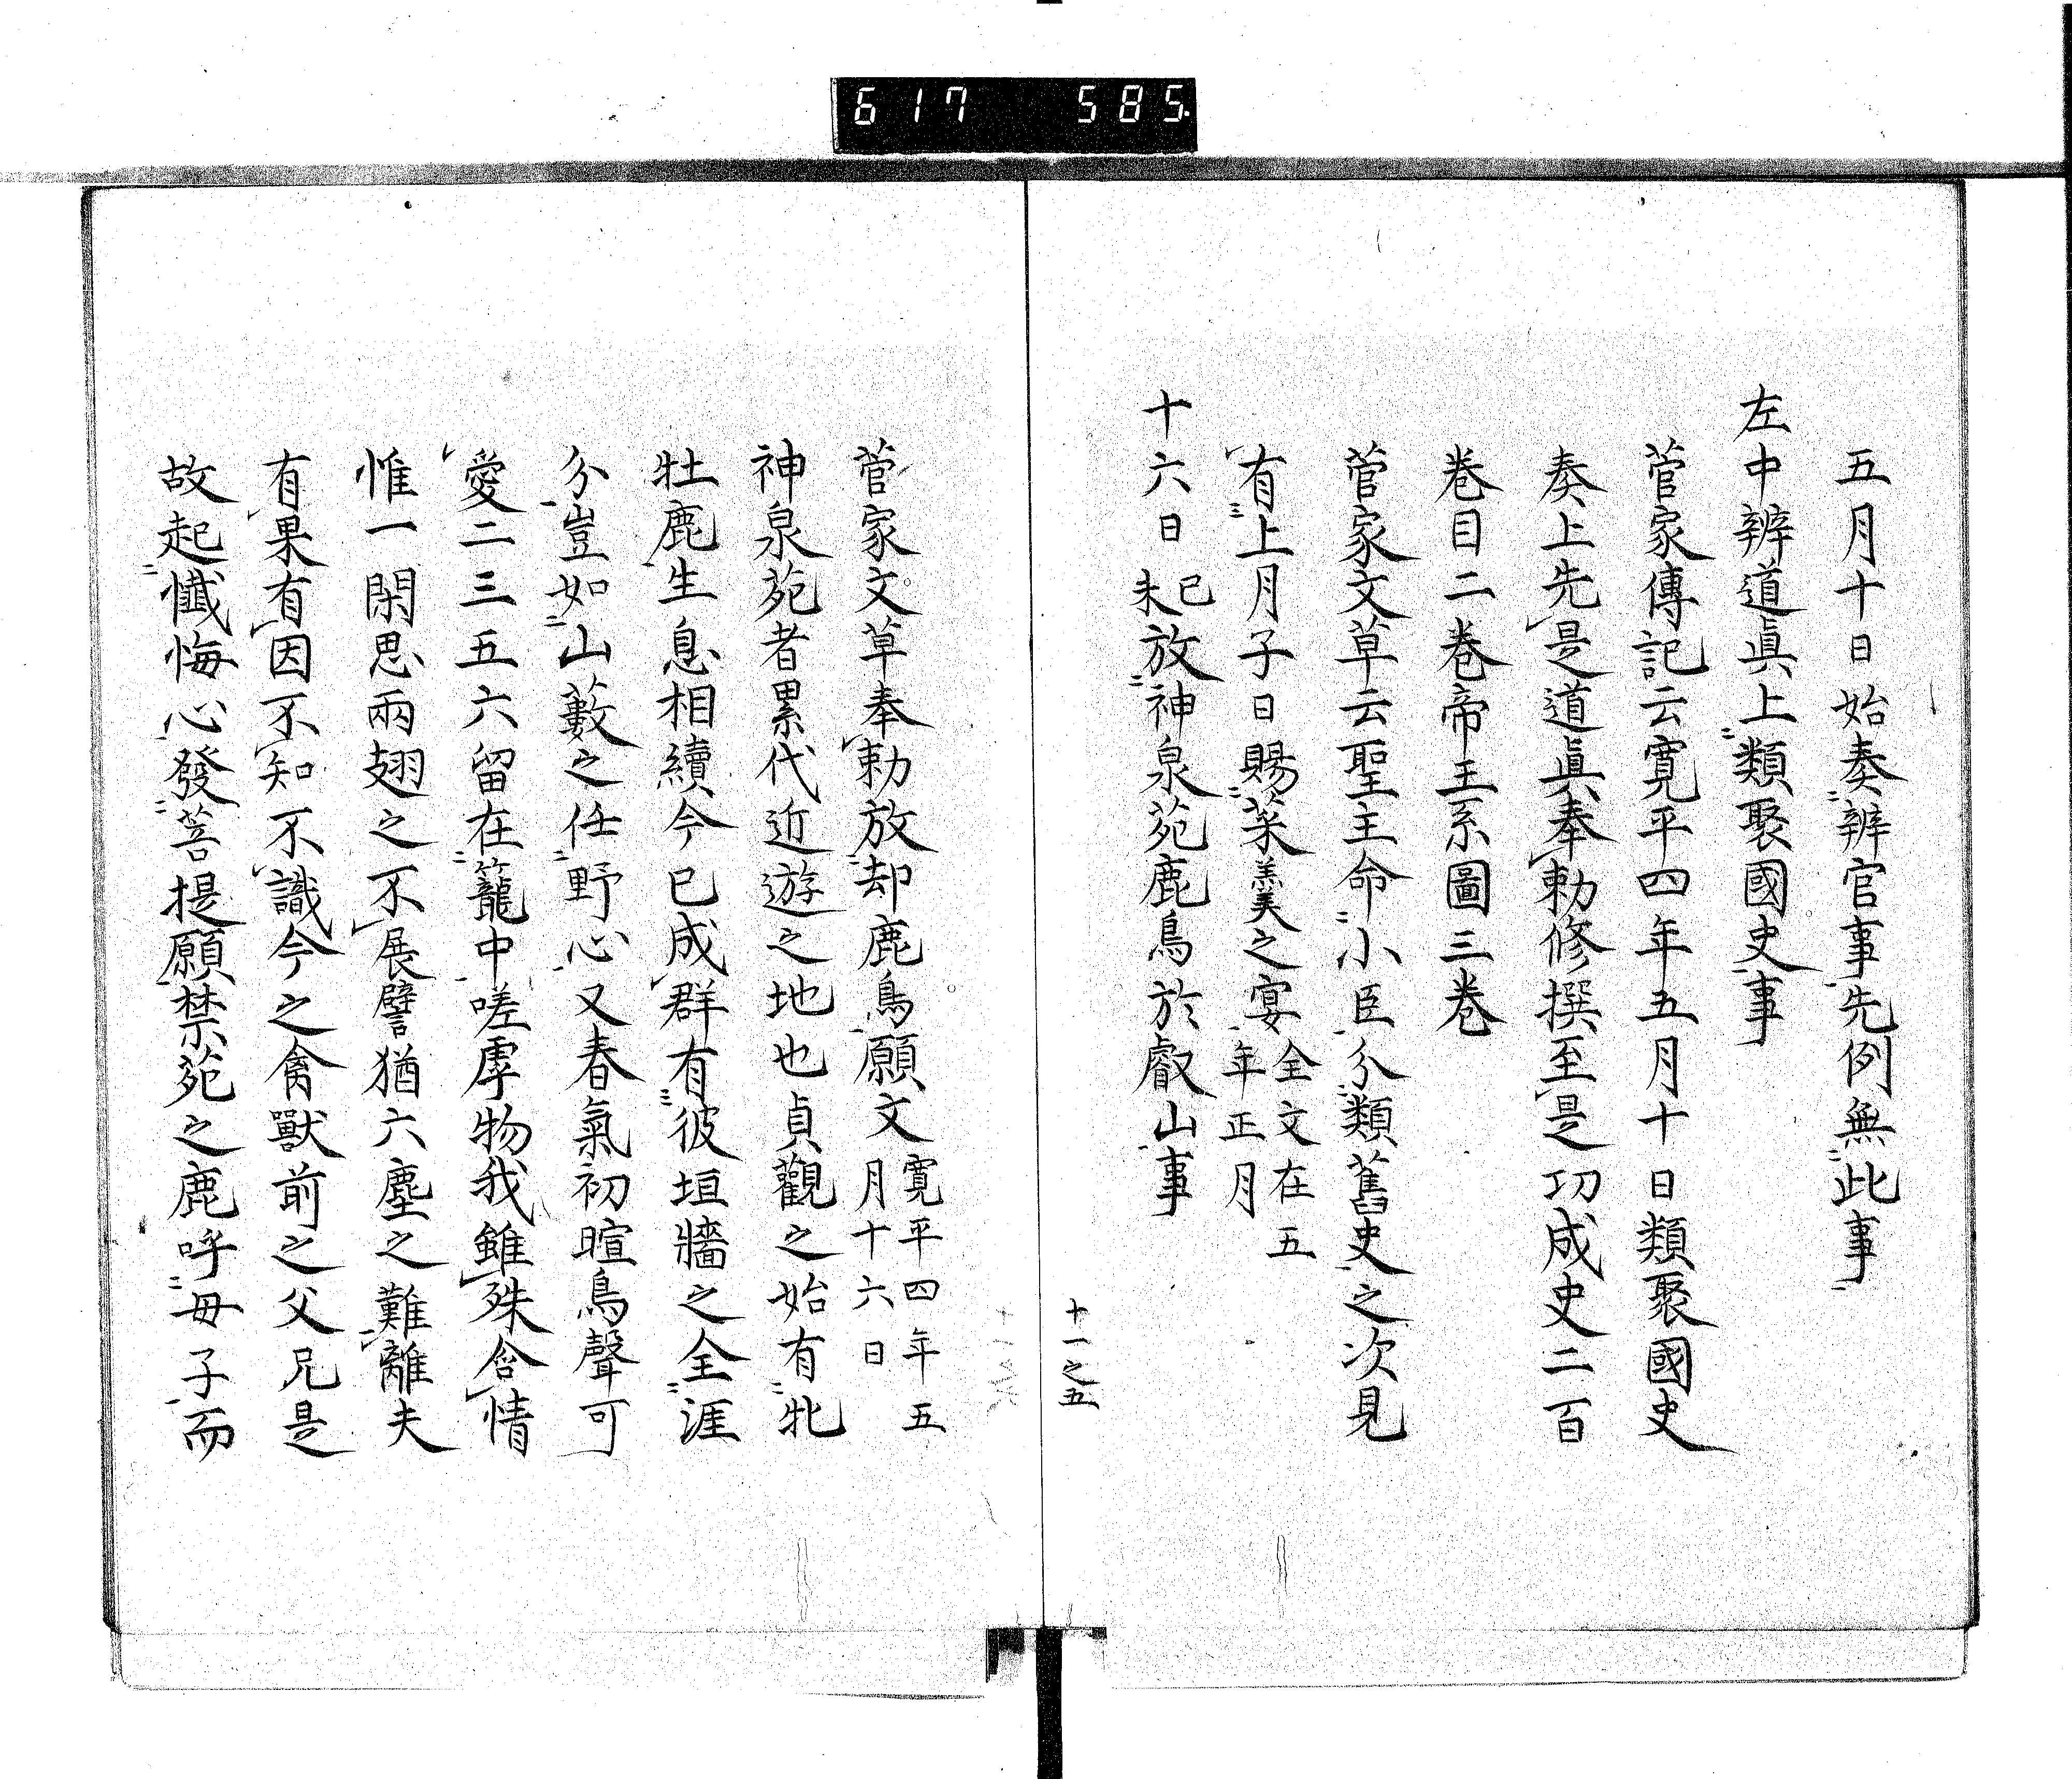 617 585
五月十日始奏辨官事先例無此事
左中辨道眞上類聚國史事
菅家傳記云寛平四年五月十日類聚國史
奏上先是道眞奉勅修撰至是功成史二百
巻目二巻帝王系圖三巻
菅家文草云聖主命小臣分類舊史之次見
有上月子日賜菜羹之宴全文在五
年正月
十六日己
未放神泉苑鹿鳥於叡山事
十一之五
菅家文草奉勅放却鹿鳥願文寛平四年五
月十六日
神泉苑者累代近遊之地也貞觀之始有牝
牡鹿生息相續今已成群有彼垣牆之全涯
分豈如山藪之任野心又春氣初暄鳥聲可
愛二三五六留在籠中嗟虖物我雖殊含情
惟一閑思兩翅之不展譬猶六塵之難離夫
有果有因不知不識今之禽獸前之父兄是
故起懺悔心發菩提願禁苑之鹿呼母子而